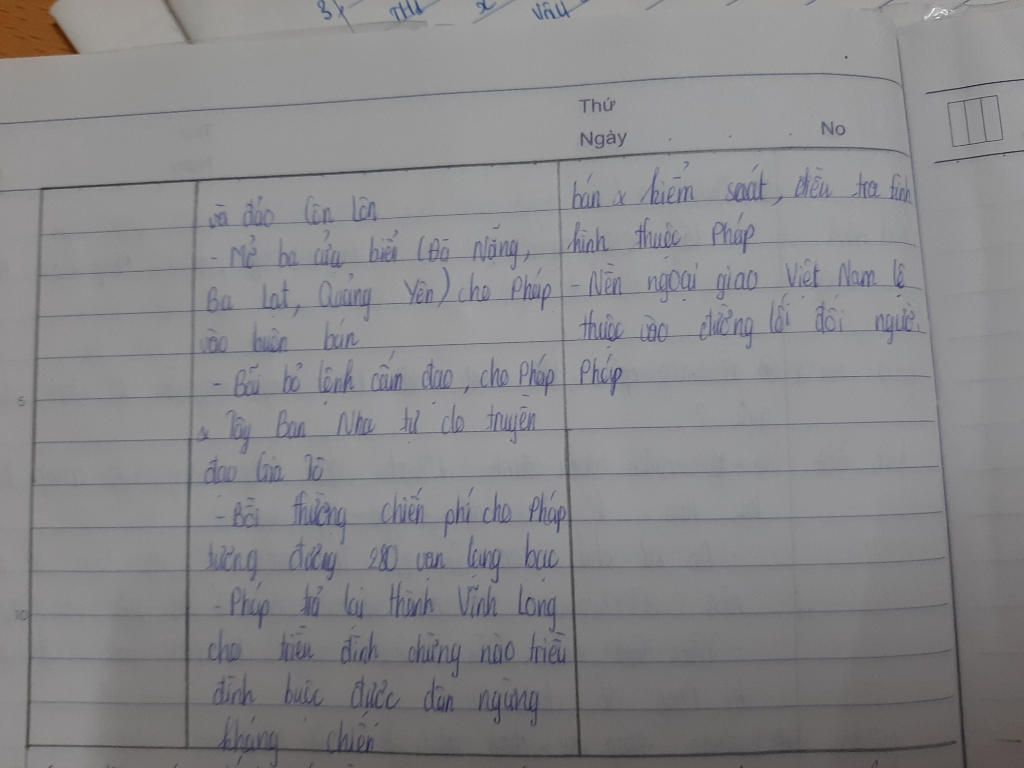 3/ THU x vău
Thứ
Ngày . . . No
và đảo Côn Lôn
- Mở ba cửa biển (Đà Nẵng,
Ba Lạt, Quảng Yên) cho Pháp
vào buôn bán
- Bãi bỏ lệnh cấm đạo, cho Pháp
& Tây Ban Nha tự do truyền
đạo Gia Tô
- Bồi thường chiến phí cho Pháp
tương đương 280 vạn lạng bạc
- Pháp trả lại thành Vĩnh Long
cho triều đình chừng nào triều
đình buộc được dân ngừng
kháng chiến
bán & kiểm soát, điều tra tình
hình thuộc Pháp
- Nền ngoại giao Việt Nam lệ
thuộc vào đường lối đối người
Pháp
5
10